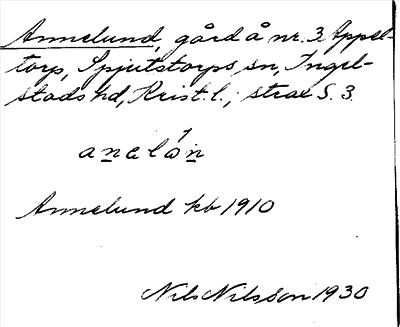 Annelund, gård å nr. 3 Appel-
torp, Spjutstorps sn, Ingel-
stads hd, Krist. l.; strax S. 3.
Annelund kb 1910
Nils Nilsson 1930